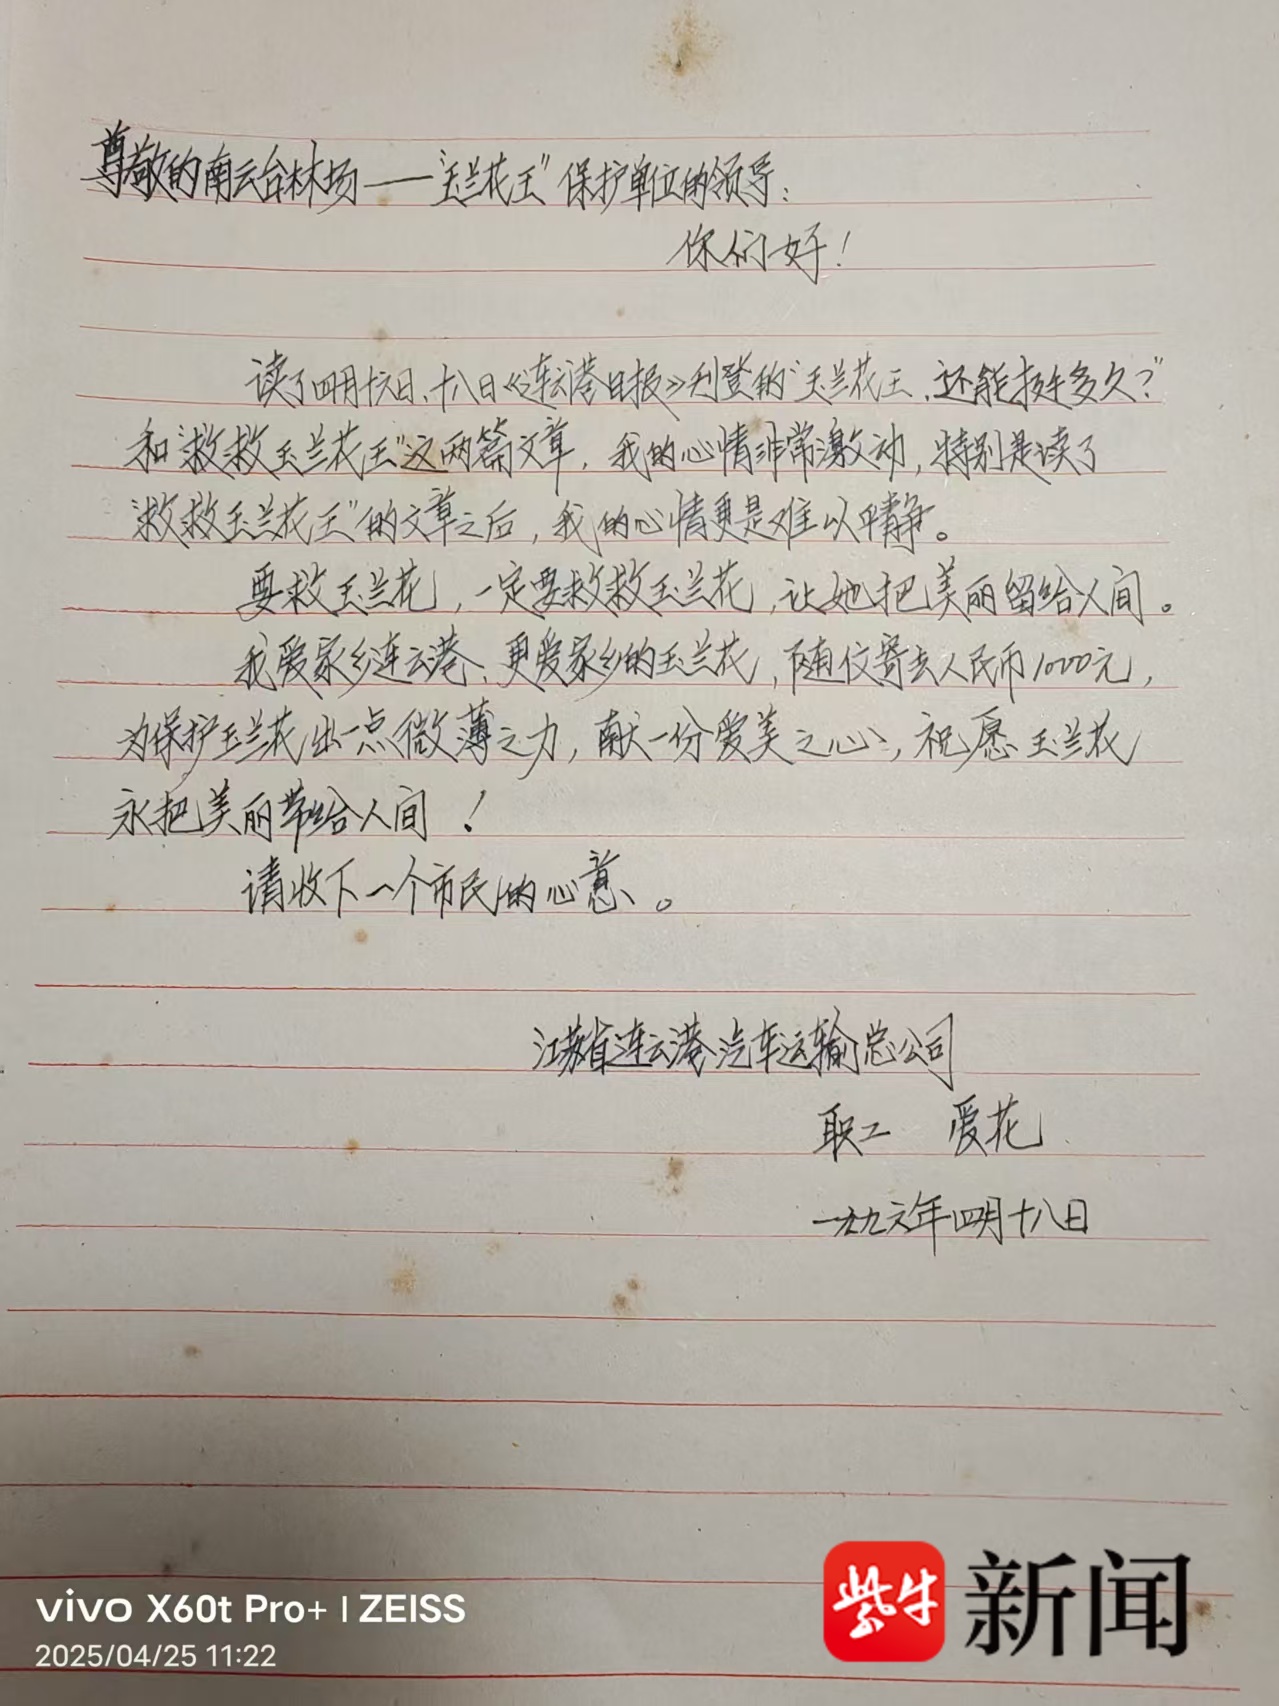 尊敬的南云台林场——“玉兰花王”保护单位的领导：
你们好！
读了四月十六日、十八日《连云港日报》刊登的“玉兰花王，还能活多久？”
和“救救玉兰花王”这两篇文章，我的心情非常激动，特别是读了
“救救玉兰花王”的文章之后，我的心情更是难以平静。
要救玉兰花，一定要救救玉兰花，让她把美丽留给人间。
我爱家乡连云港、更爱家乡的玉兰花，随信寄去人民币1000元，
为保护玉兰花出一点微薄之力，献一份爱美之心，祝愿玉兰花
永把美丽带给人间！
请收下一个市民的心意。
江苏省连云港汽车运输总公司
职工 爱花
一九九六年四月十八日
vivo X60t Pro+ | ZEISS
2025/04/25 11:22
紫牛 新闻